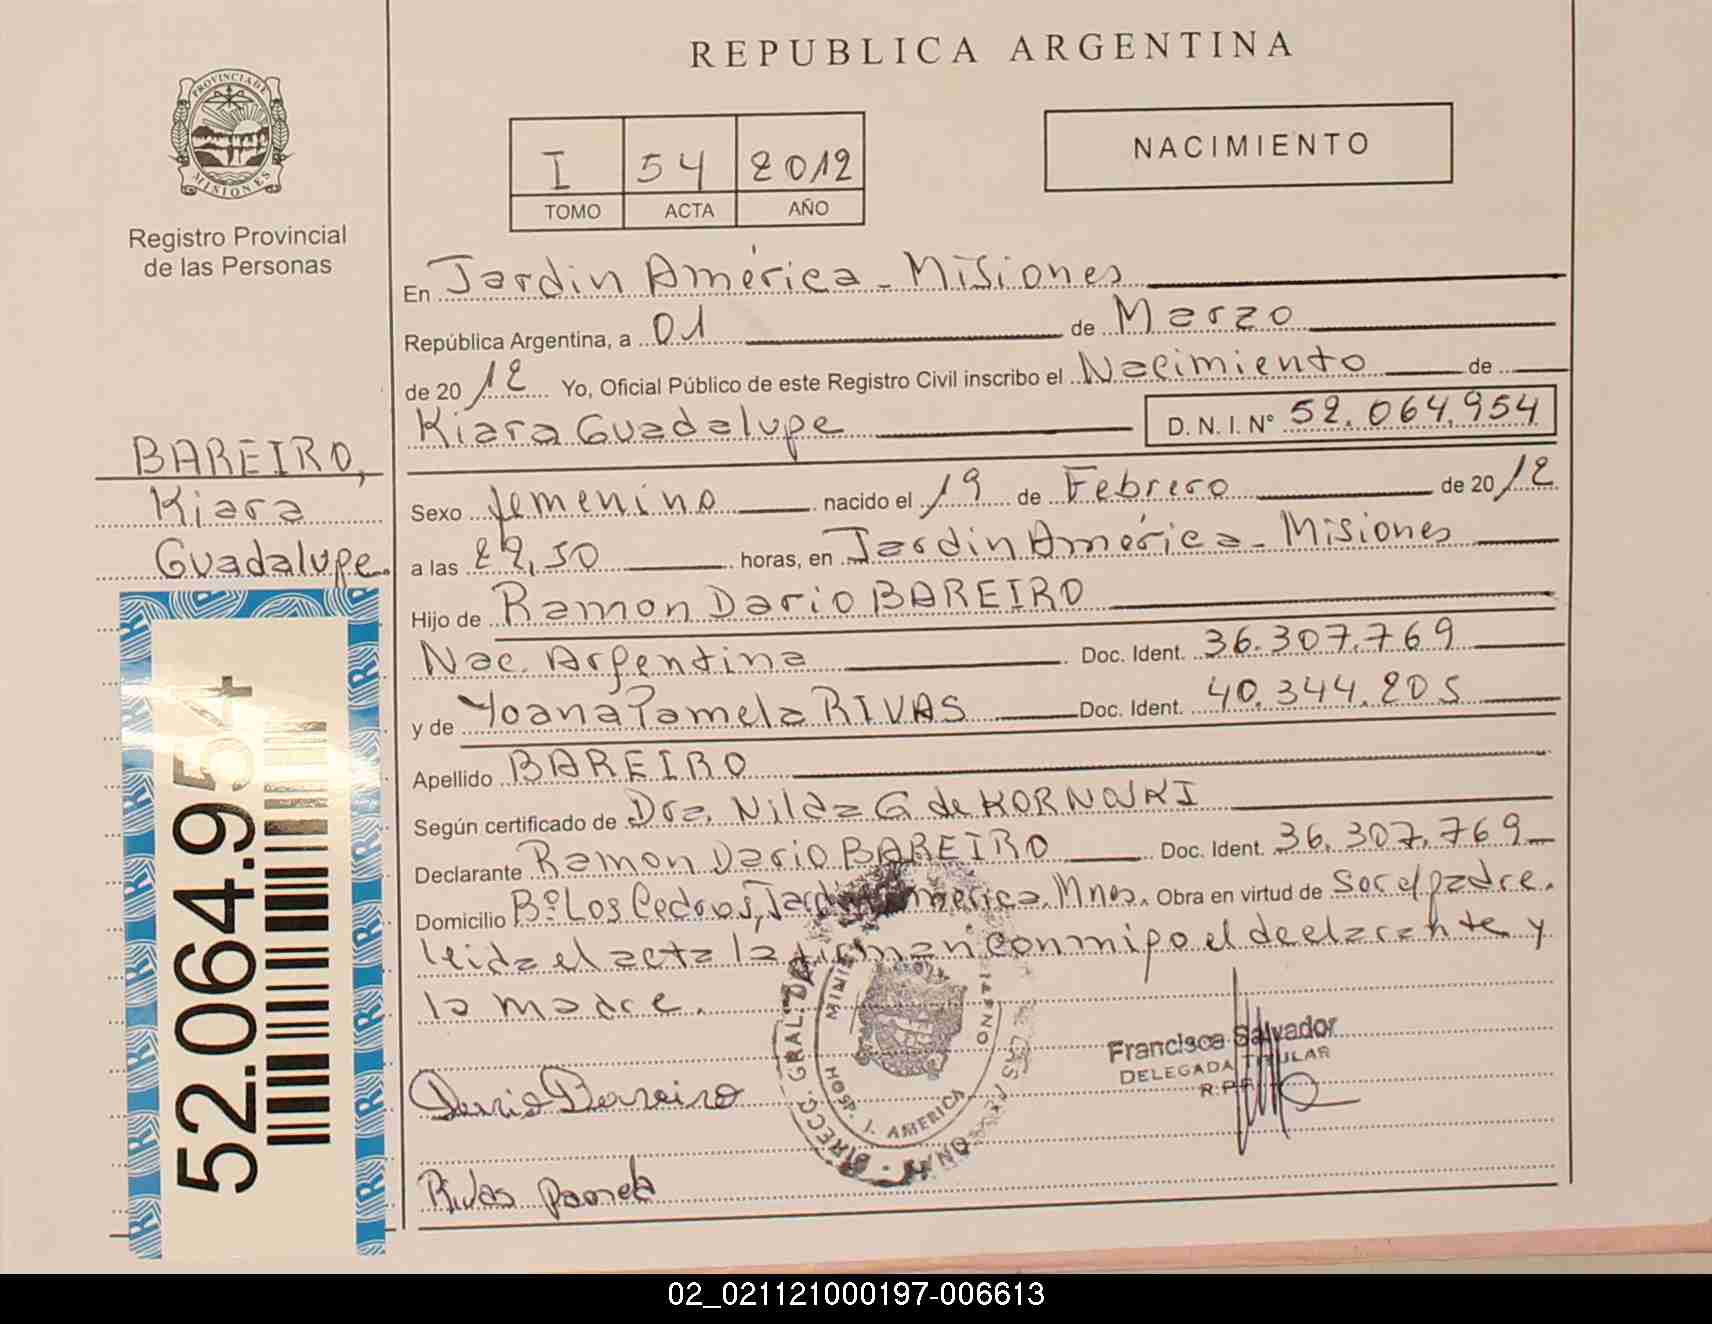 REPUBLICA ARGENTINA
PROVINCIA DE MISIONES
Registro Provincial
de las Personas
I 54 2012
TOMO ACTA AÑO
NACIMIENTO
En Jardin América - Misiones
República Argentina, a 01 de Marzo
de 2012 Yo, Oficial Público de este Registro Civil inscribo el Nacimiento de
Kiara Guadalupe D. N. I. Nº 52.064.954
BAREIRO,
Kiara
Guadalupe.
Sexo femenino nacido el 19 de Febrero de 2012
a las 22,50 horas, en Jardin América - Misiones
Hijo de Ramon Dario BAREIRO
Nac. Argentina Doc. Ident. 36.307.769
y de Yoana Pamela RIVAS Doc. Ident. 40.344.205
Apellido BAREIRO
Según certificado de Dra. Nilda G de
Declarante Ramon Dario BAREIRO Doc. Ident. 36.307.769
Domicilio Bº Los Cedros, Jardin America. Mnes. Obra en virtud de Ser el padre.
leida el acta la firman conmigo el declarante y
la madre.
52.064.954
DIRECC. GRAL. DE
HOSP. J. AMERICA
Francisca Salvador
DELEGADA TITULAR
R.P.P.
Dario Bareiro
Rivas Pamela
02_021121000197-006613